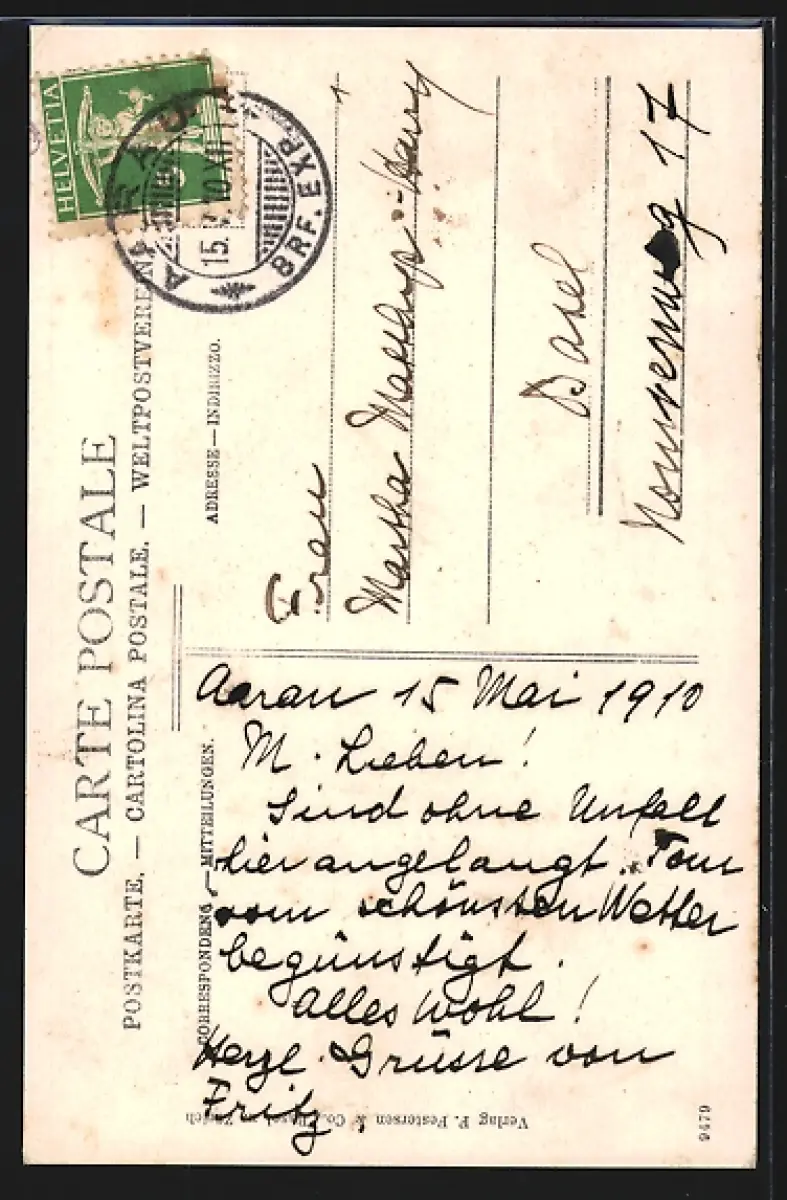 HELVETIA
AARAU
15.V.10.XII
BRF. EXP.
CARTE POSTALE
POSTKARTE. — CARTOLINA POSTALE. — WELTPOSTVEREIN
ADRESSE — INDIRIZZO.
Frau
Martha
Basel
Nonnenweg 17
CORRESPONDENS — MITTEILUNGEN.
Aarau 15 Mai 1910
M. Lieben!
Sind ohne Unfall
hier angelangt. Tour
vom schönsten Wetter
begünstigt.
Alles wohl!
Herzl. Grüsse von
Fritz.
Verlag P. Pestersen & Co., Basel u. Zürich
9479